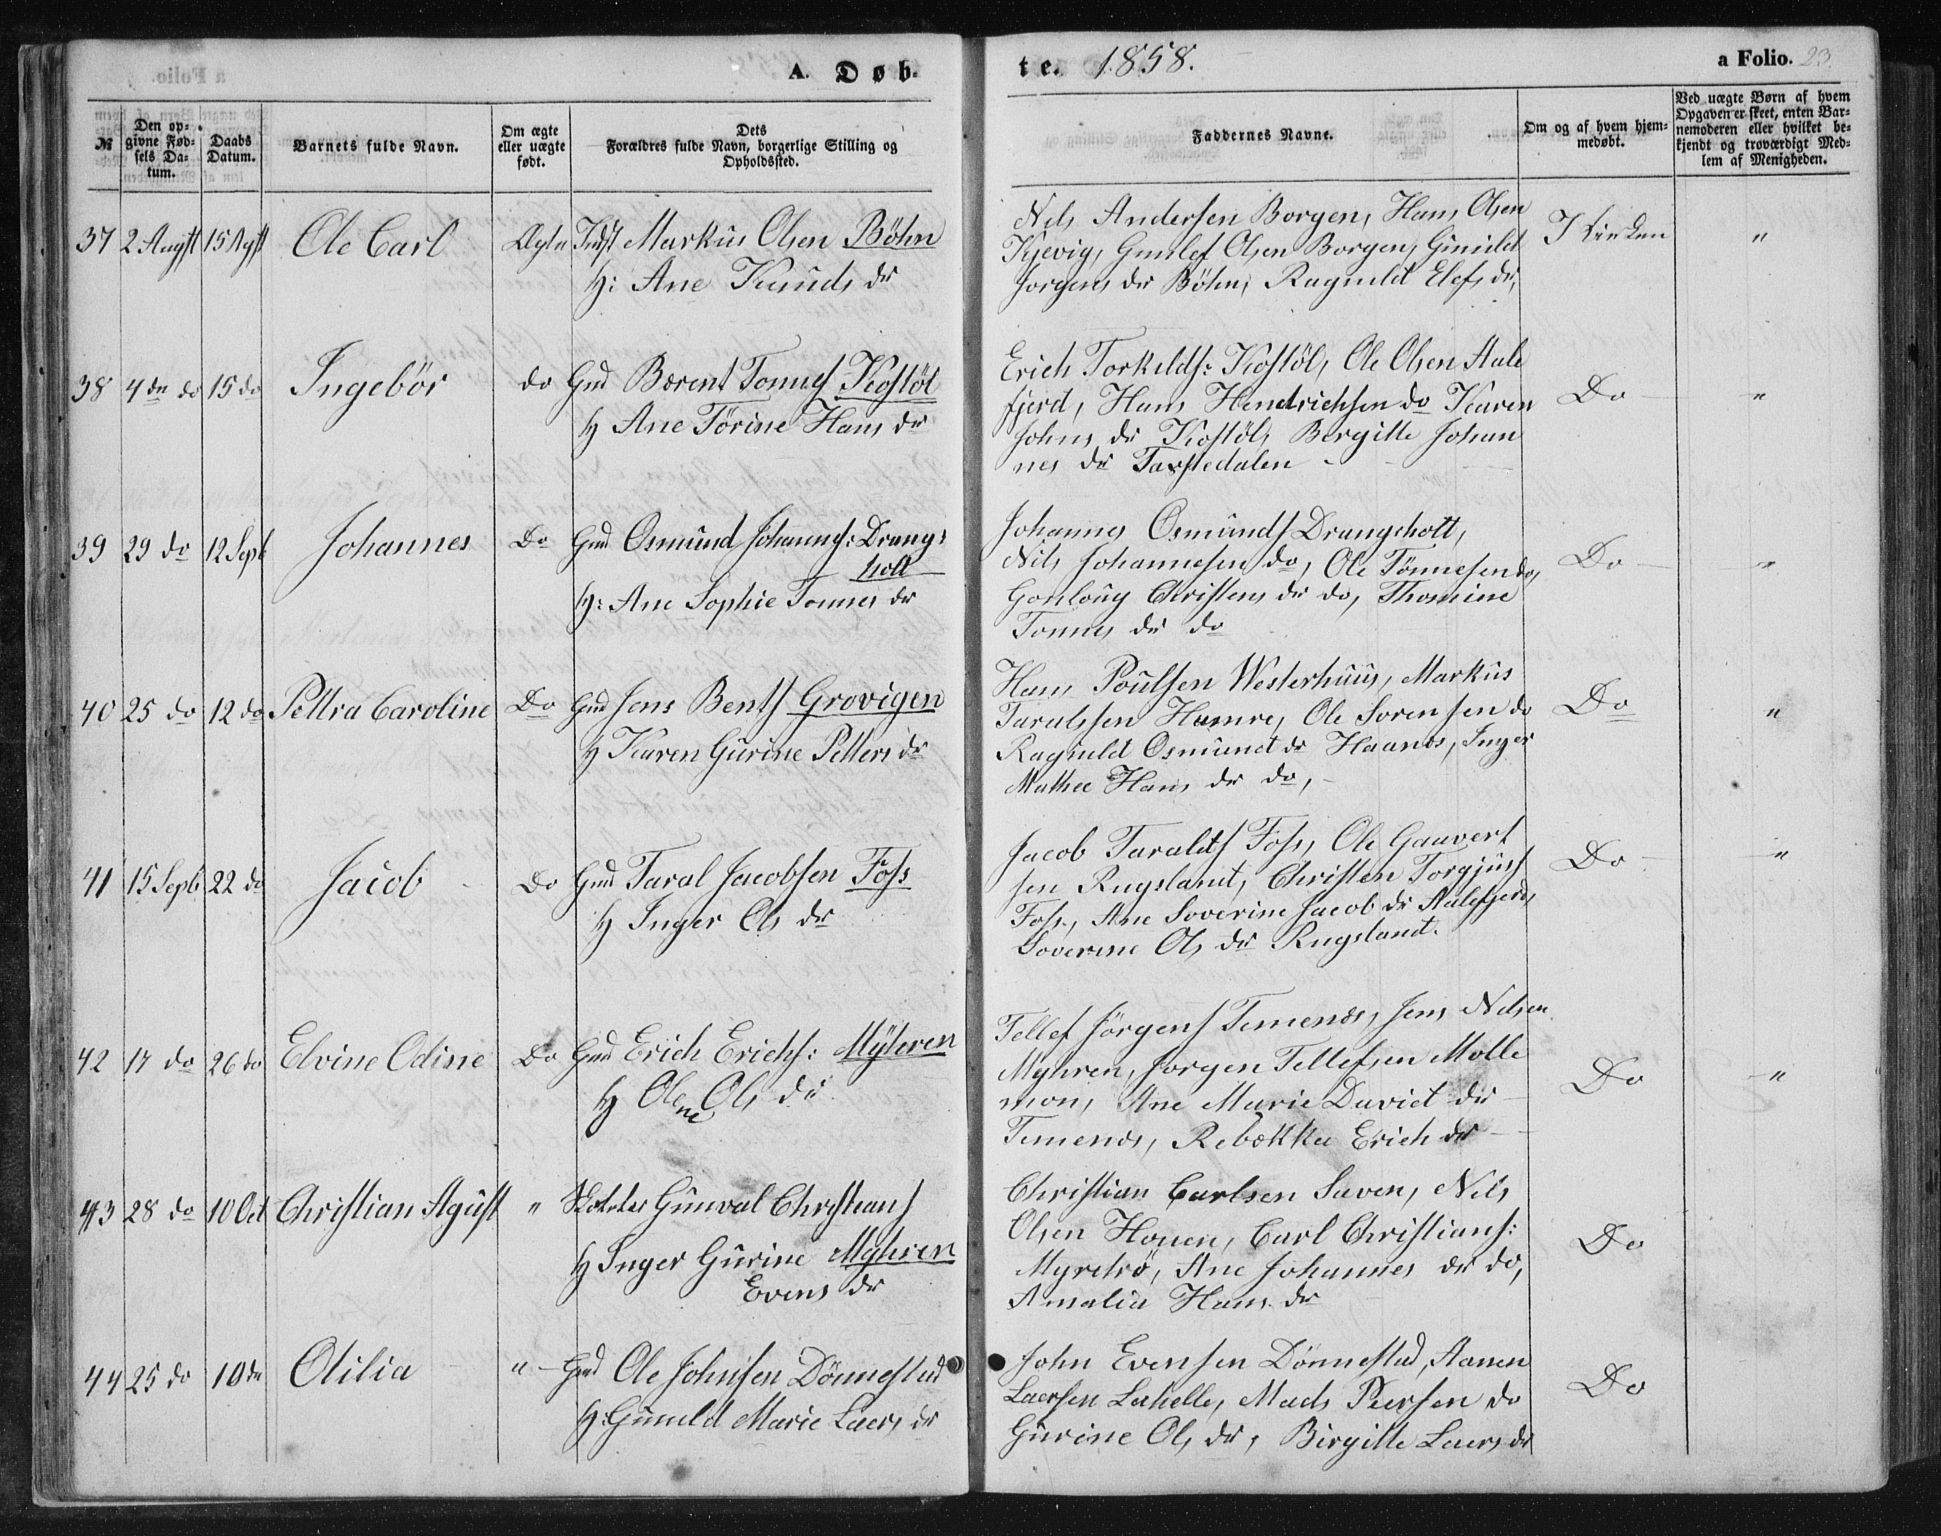 A. Døb-
te. 1858.
a Folio. 23.
№
Den op-
givne Fød-
sels Da-
tum.
Daabs
Datum.
Barnets fulde Navn.
Om ægte
eller uægte
født.
Dets
Forældres fulde Navn, borgerlige Stilling og
Opholdssted.
Faddernes Navne.
Om og af hvem hjem-
medøbt.
Ved uægte Børn af hvem
Opgaven er skeet, enten Bar-
nemoderen eller hvilket be-
kjendt og troværdigt Med-
lem af Menigheden.
37 2 Augst 15 Agst Ole Carl Ægte Indst Markus Olsen Böhn
H: Ane Knuds dr
Nels Andersen Borgen, Hans Olsen
Kjevig, Gunlef Olsen Borgen, Gunild
Jorgens dr Böhn, Ragnild Elefs dr,
I Kirken "
38 4de do 15 do Ingebör do Gmd Berent Tonnes Kostöl
H Ane Törine Hans dr
Erich Torkilds: Kostöl, Ole Olsen Aale
fjerd, Hans Hendrichsen do Karen
Johns dr Kostöl, Bergitte Johan
nes dr Taxstedalen
Do "
39 29 do 12 Sept Johannes Do Gmd Osmund Johannes: Drang:
holt
H: Ane Sophie Tonnes dr
Johannes Osmunds Drangeholt,
Nils Johannesen do, Ole Tönnesen do,
Gonloug Christens dr do, Thomine
Tonnes dr do
Do "
40 25 do 12 do Pettra Caroline Do Gmd Jens Bents Grovigen
H Karen Gurine Petters dr
Hans Poulsen Westerhuus, Markus
Taraldsen Hamre, Ole Sorensen do
Ragnild Osmund dr Haanes, Inger
Mathea Hans dr do,
Do "
41 15 Sept 22 do Jacob Do Gmd Taral Jacobsen Foss
H Inger Ols dr
Jacob Taralds Foss, Ole Gaavert
sen Rugsland, Christen Torgjus
Foss, Ane Soverine Jacob dr Aalefjerd,
Soverine Ols dr Rugsland.
Do "
42 17 do 26 do Elvine Odine Do Gmd Erich Erichs: Myhren
H Olene Ols dr
Tellef Jörgens Temenes, Jens Nelsen
Myhren, Jorgen Tellefsen Molle
mon, Ane Marie David dr
Temenes, Rebekka Erich dr
Do "
43 28 do 10 Oct Christian Agust " Gunval Christians
H Inger Gurine Myhren
Evens dr
Christian Carlsen Saven, Nels
Olsen Honen, Carl Christians:
Myretrö, Ane Johannes dr do,
Amalia Hans dr
Do
44 25 do 10 de Otilia " Gmd Ole Johnsen Dönnestad
H: Gunild Marie Laers dr
John Evensen Dönnestad, Aanen
Laersen Lahelle, Mads Peersen do
Gurine Ols dr, Birgitte Laers dr
Do